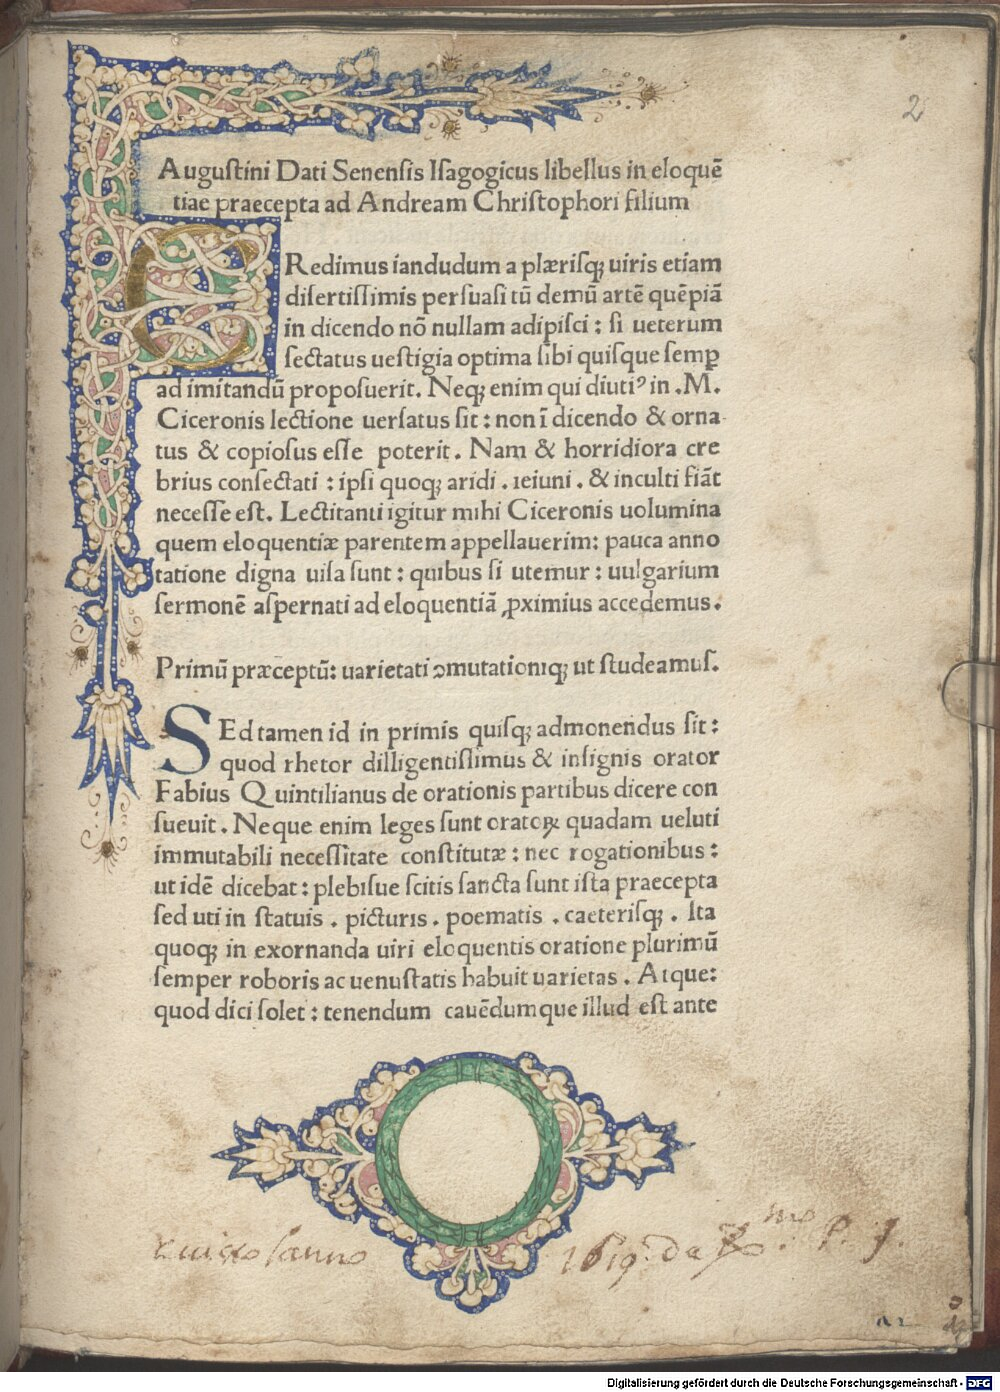 2
Auguſtini Dati Senenſis Iſagogicus libellus in eloquē
tiae praecepta ad Andream Chriſtophori filium
CRedimus iandudum a plæriſq; uiris etiam
diſertiſſimis perſuaſi tū demū artē quēpiā
in dicendo nō nullam adipiſci : ſi ueterum
ſectatus ueſtigia optima ſibi quiſque ſemp̲
ad imitandū propoſuerit. Neq; enim qui diutiꝰ in .M.
Ciceronis lectione uerſatus ſit : non ī dicendo & orna
tus & copioſus eſſe poterit. Nam & horridiora cre
brius conſectati : ipſi quoq; aridi . ieiuni . & inculti fiāt
neceſſe eſt. Lectitanti igitur mihi Ciceronis uolumina
quem eloquentiæ parentem appellauerim: pauca anno
tatione digna uiſa ſunt : quibus ſi utemur : uulgarium
ſermonē aſpernati ad eloquentiā ꝓximius accedemus.
Primū præceptū: uarietati ↄmutationiq; ut ſtudeamuſ.
SEd tamen id in primis quiſq; admonendus ſit :
quod rhetor dilligentiſſimus & inſignis orator
Fabius Quintilianus de orationis partibus dicere con
ſueuit . Neque enim leges ſunt oratoꝝ quadam ueluti
immutabili neceſſitate conſtitutæ : nec rogationibus :
ut idē dicebat : plebiſue ſcitis ſancta ſunt iſta praecepta
ſed uti in ſtatuis . picturis . poematis . caeteriſq; . Ita
quoq; in exornanda uiri eloquentis oratione plurimū
ſemper roboris ac uenuſtatis habuit uarietas . Atque:
quod dici ſolet : tenendum cauēdumque illud eſt ante
1619. da
P. J.
a 2
Digitalisierung gefördert durch die Deutsche Forschungsgemeinschaft - DFG